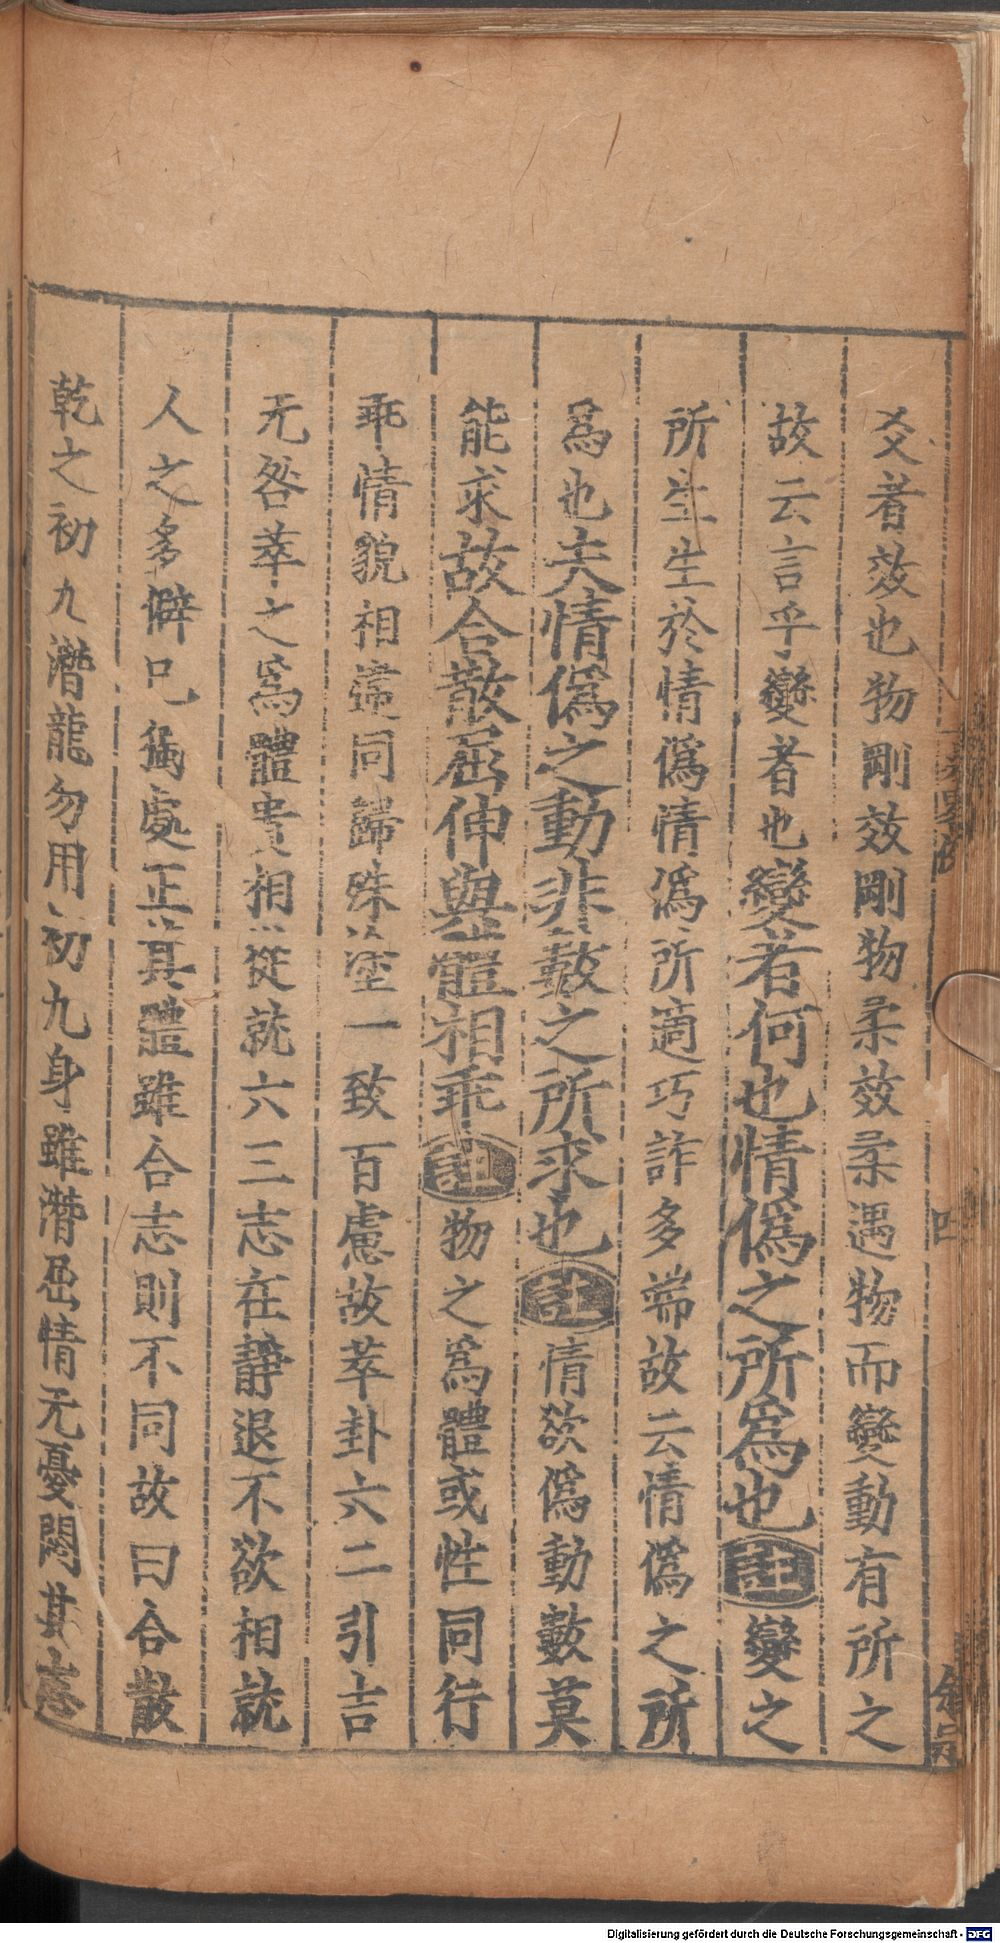 爻者效也物剛效剛物柔效柔遇物而變動有所之
故云言乎變者也變若何也情偽之所為也註變之
所生生於情偽情偽所適巧詐多端故云情偽之所
為也夫情偽之動非數之所求也註情欲偽動數莫
能求故合散屈伸與體相乖註物之為體或性同行
乖情貌相違同歸殊塗一致百慮故萃卦六二引吉
无咎萃之為體貴相從就六三志在靜退不欲相就
人之多僻己獨處正其體雖合志則不同故曰合散
乾之初九潛龍勿用初九身雖潛屈情无憂悶其志
Digitalisierung gefördert durch die Deutsche Forschungsgemeinschaft - DFG